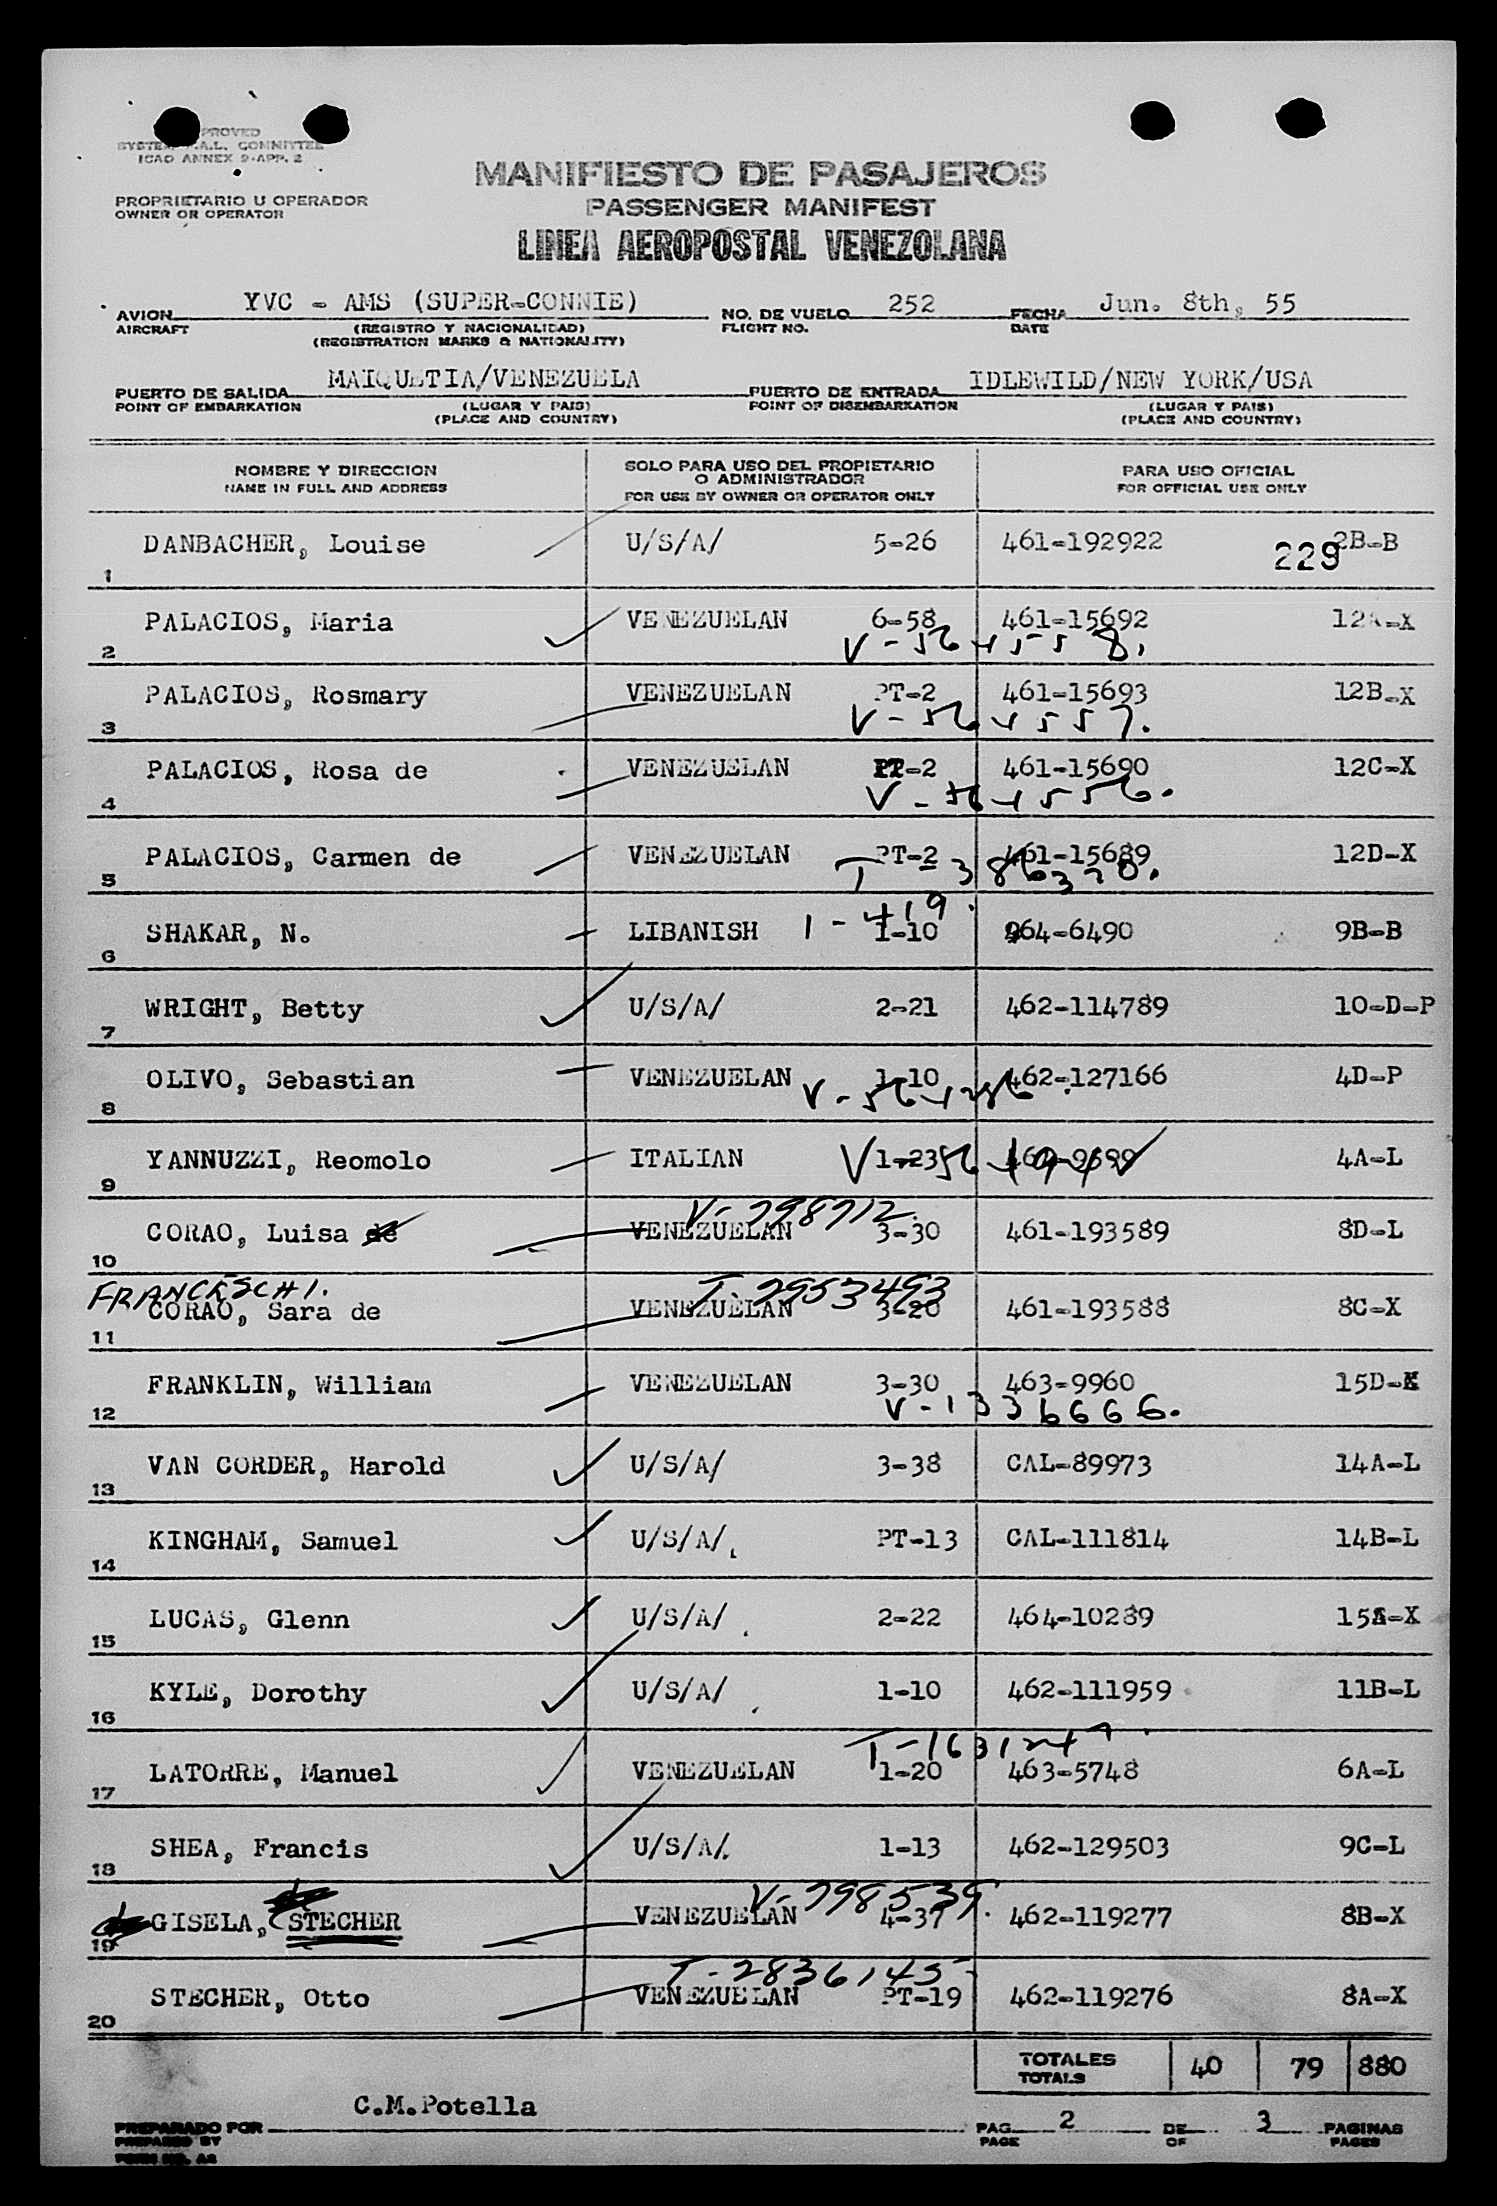 PROVED
SYSTEM .A.L. COMMITTEE
ICAO ANNEX 9-APP. 2
PROPRIETARIO U OPERADOR
OWNER OR OPERATOR
MANIFIESTO DE PASAJEROS
PASSENGER MANIFEST
LINEA AEROPOSTAL VENEZOLANA
AVION YVC - AMS (SUPER-CONNIE) NO. DE VUELO 252 FECHA Jun. 8th, 55
AIRCRAFT (REGISTRO Y NACIONALIDAD) FLIGHT NO. DATE
(REGISTRATION MARKS & NATIONALITY)
PUERTO DE SALIDA MAIQUETIA/VENEZUELA PUERTO DE ENTRADA IDLEWILD/NEW YORK/USA
POINT OF EMBARKATION (LUGAR Y PAIS) POINT OF DISEMBARKATION (LUGAR Y PAIS)
(PLACE AND COUNTRY) (PLACE AND COUNTRY)
NOMBRE Y DIRECCION SOLO PARA USO DEL PROPIETARIO PARA USO OFICIAL
O ADMINISTRADOR
NAME IN FULL AND ADDRESS FOR USE BY OWNER OR OPERATOR ONLY FOR OFFICIAL USE ONLY
DANBACHER, Louise U/S/A/ 5-26 461-192922 2B-B
1 229
PALACIOS, Maria VENEZUELAN 6-58 461-15692 12A-X
2 V-564558.
PALACIOS, Rosmary VENEZUELAN PT-2 461-15693 12B-X
3 V-564557.
PALACIOS, Rosa de VENEZUELAN PT-2 461-15690 12C-X
4 V-564556.
PALACIOS, Carmen de VENEZUELAN PT-2 461-15689 12D-X
5 T-
1-419.
SHAKAR, N. LIBANISH 1-10 964-6490 9B-B
6
WRIGHT, Betty U/S/A/ 2-21 462-114789 10-D-P
7
OLIVO, Sebastian VENEZUELAN 1-10 462-127166 4D-P
8
YANNUZZI, Reomolo ITALIAN 1-23 4A-L
9
V-798712.
CORAO, Luisa de VENEZUELAN 3-30 461-193589 8D-L
10
FRANCESCHI. T-2953493
CORAO, Sara de VENEZUELAN 3-20 461-193588 8C-X
11
FRANKLIN, William VENEZUELAN 3-30 463-9960 15D-X
12 V-1336666.
VAN CORDER, Harold U/S/A/ 3-38 CAL-89973 14A-L
13
KINGHAM, Samuel U/S/A/ PT-13 CAL-111814 14B-L
14
LUCAS, Glenn U/S/A/ 2-22 464-10239 15A-X
15
KYLE, Dorothy U/S/A/ 1-10 462-111959 11B-L
16
T-1631247
LATORRE, Manuel VENEZUELAN 1-20 463-5748 6A-L
17
SHEA, Francis U/S/A/ 1-13 462-129503 9C-L
18
V-798539.
GISELA, STECHER VENEZUELAN 4-37 462-119277 8B-X
19
T-2836145
STECHER, Otto VENEZUELAN PT-19 462-119276 8A-X
20
TOTALES 40 79 880
TOTALS
C.M.Potella
PREPARADO POR PAG. 2 DE 3 PAGINAS
PREPARED BY PAGE OF PAGES
FORM NO. A2